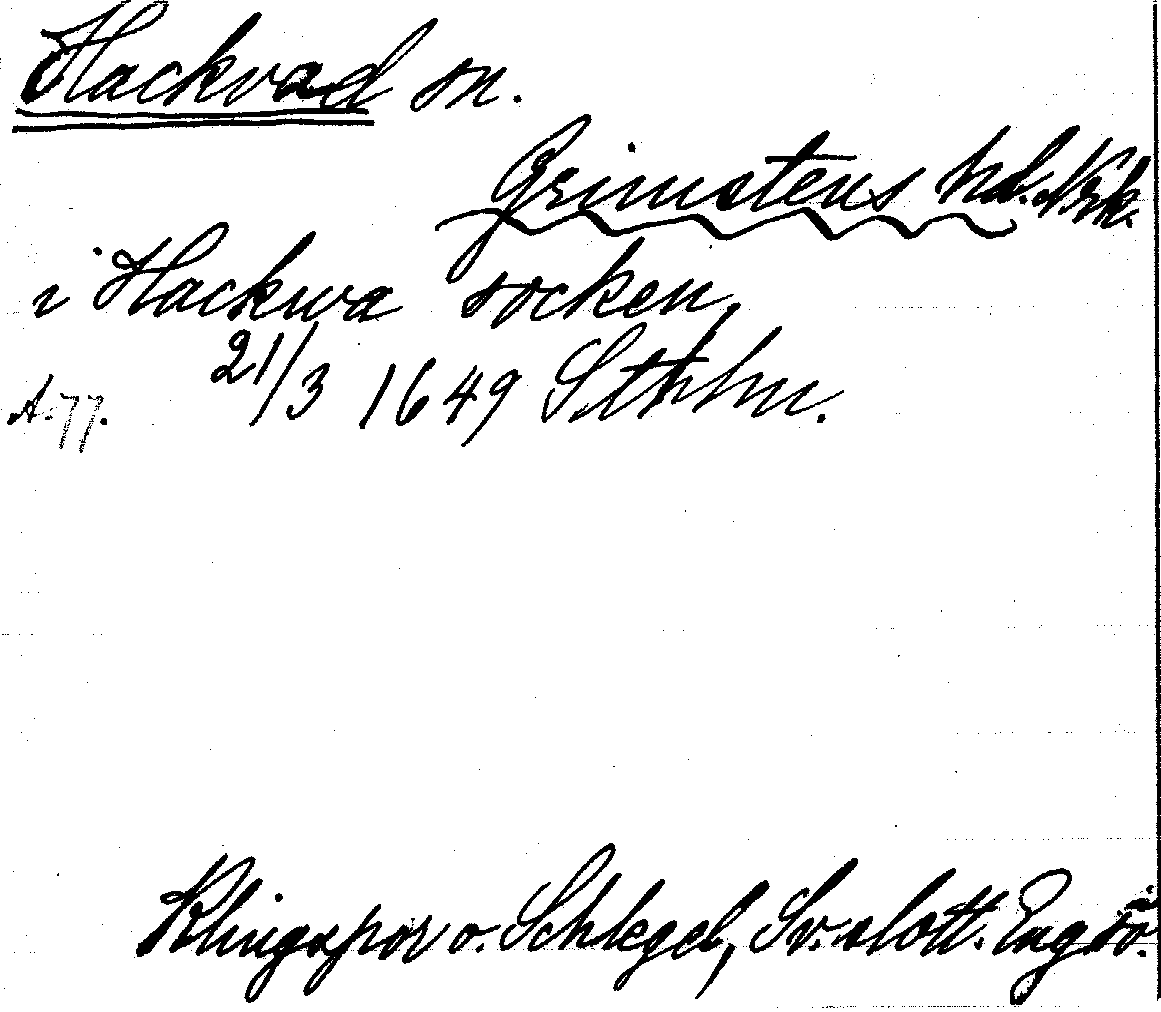 Hackvad sn.
Grimstens hd. Nrk.
i Hackwa socken,
21/3 1649 Sthlm.
A. 77.
Klingspor o. Schlegel, Sv. slott. Engsö.